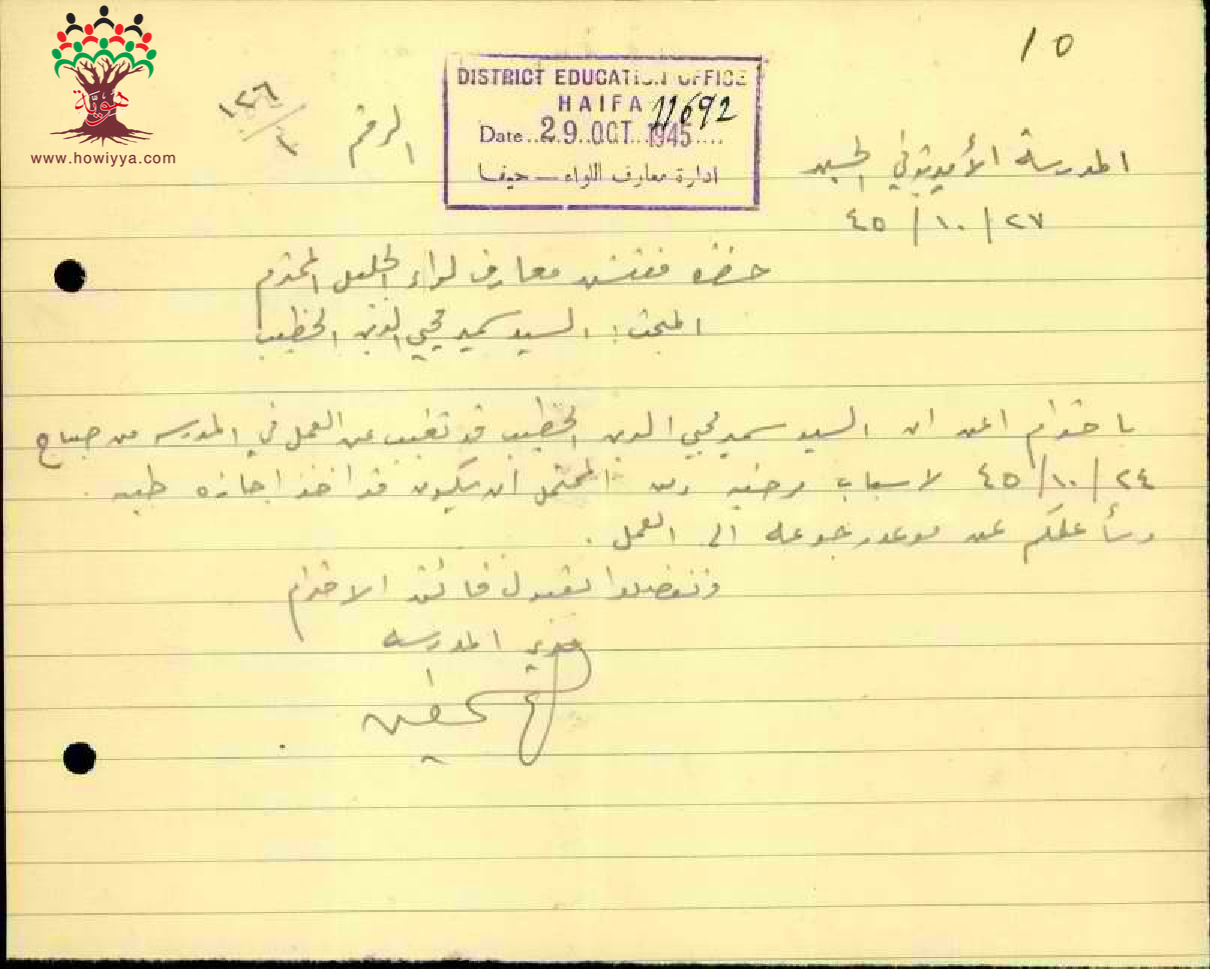 10
DISTRICT EDUCATION OFFICE
HAIFA 11692
Date 29 OCT 1945
ادارة معارف اللواء — حيفا
الرقم ١٢٦/٤
هوية
www.howiyya.com
المدرسة الأميرية في
٢٧ / ١٠ / ٤٥
حضرة مفتش معارف لواء الجليل المحترم
المبحث : السيد سميد محيي الدين الخطيب
باحترام اعلن ان السيد سميد محيي الدين الخطيب قد تغيب عن العمل في المدرسه من صباح
٢٤ / ١٠ / ٤٥ لاسباب مرضيه ومن المحتمل ان يكون قد اخذ اجازه طبيه .
وسأعلمكم عن موعد رجوعه الى العمل .
وتفضلوا بقبول فائق الاحترام
مدير المدرسه